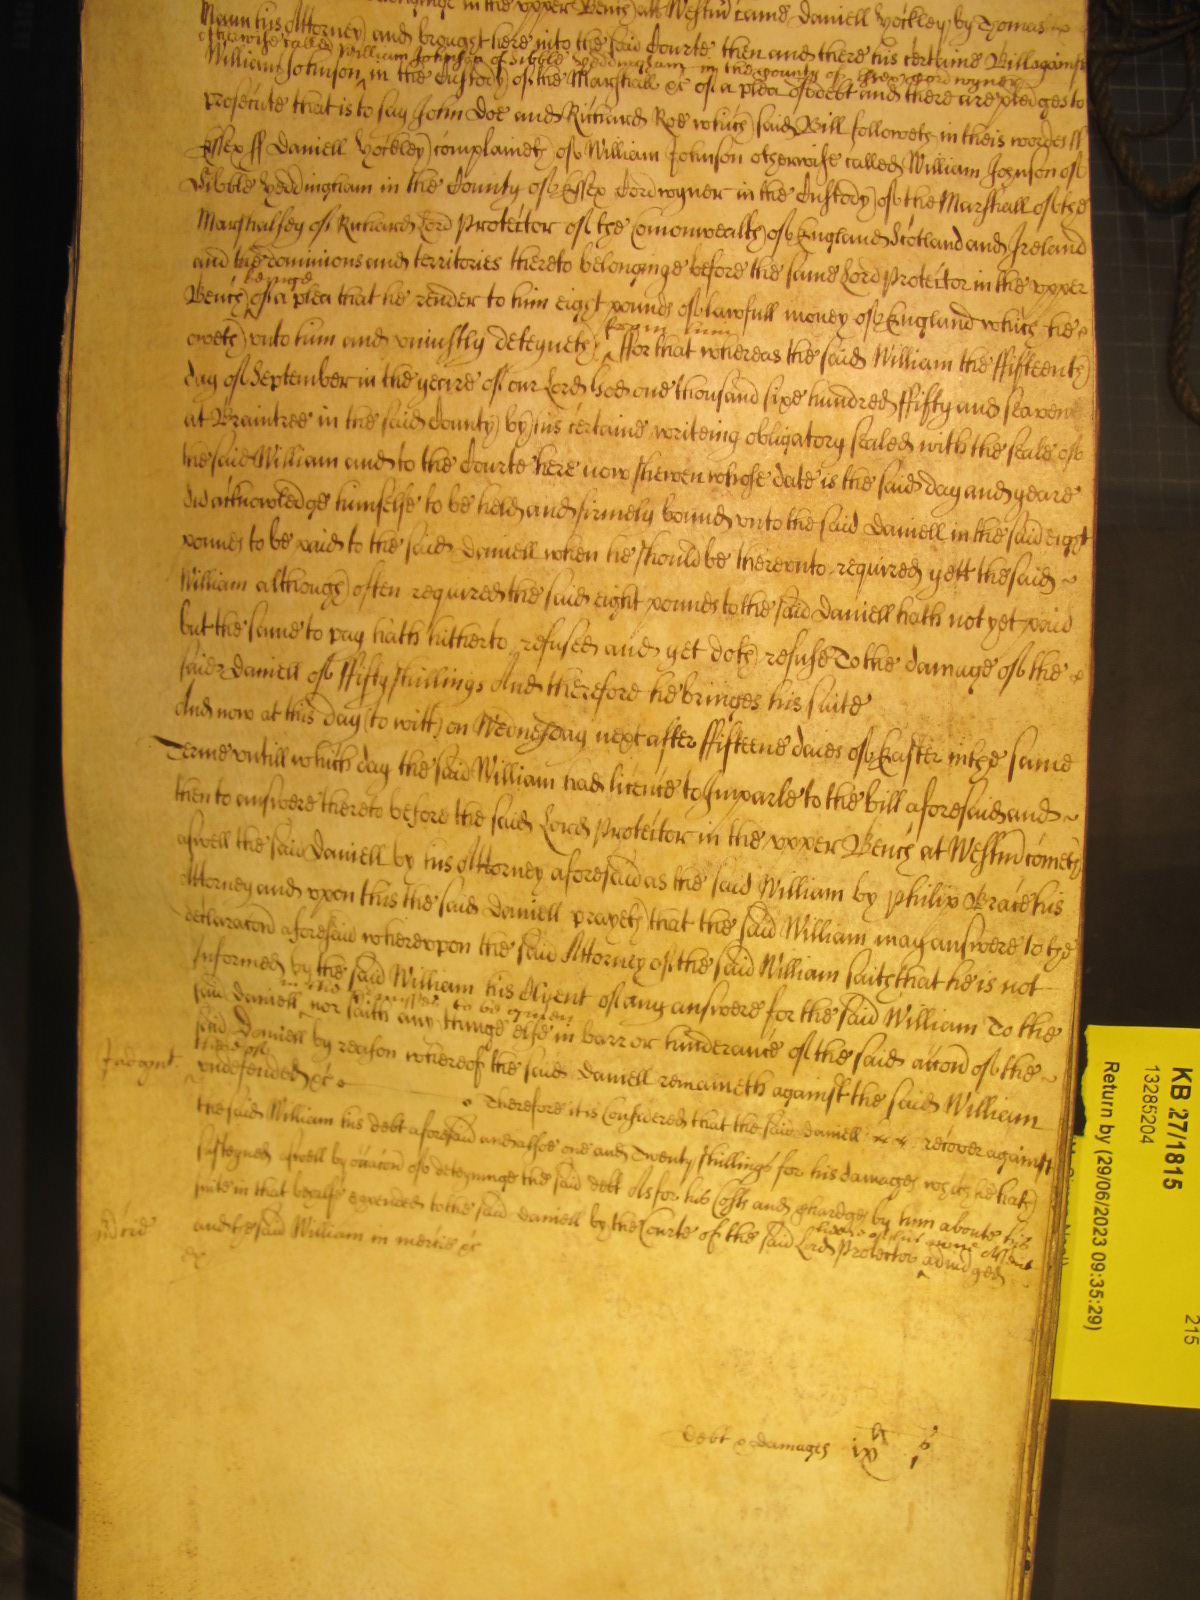 in the vpper Bench att Westm came Daniell Hockley by Thomas
Mann his Attorney and brought here into the said Courte then and there his certaine Bill against
otherwise called William Johnson of Sible Heddingham in the county of Essex cordwyner
William Johnson in the Custody of the Marshall &c of a plea of debt and there are pledges to
prosecute that is to say John Doe and Richard Roe which said Bill followeth in theis wordes ss
Essex ss Daniell Hockley complaineth of William Johnson otherwise called William Johnson of
Sibble Heddingham in the County of Essex Cordwyner in the Custody of the Marshall of the
Marshalsey of Richard Lord Protector of the Comonwealth of England Scotland and Ireland
and the dominions and territories thereto belonginge before the same Lord Protector in the vpper
beinge
Bench of a plea that he render to him eight pounds of lawfull money of England which he
from him
oweth vnto him and vniustly deteyneth ffor that whereas the said William the ffifteenth
day of September in the yeare of our Lord God one thousand sixe hundred ffifty and seaven
at Braintree in the said County by his certaine writeing obligatory sealed with the seale of
the said William and to the Courte here now shewen whose date is the said day and yeare
did acknowledge himselfe to be held and firmely bound vnto the said Daniell in the said eight
pounds to be paid to the said Daniell when he should be therevnto required yett the said
William although often required the said eight pounds to the said Daniell hath not yet paid
but the same to pay hath hitherto refused and yet doth refuse To the damage of the
said Daniell of ffifty shillings And therefore he bringes his suite
And now at this day (to witt) on Wednesday next after ffifteene daies of Easter in the same
Terme vntill which day the said William had licence to Imparle to the bill aforesaid and
then to answere thereto before the said Lord Protector in the vpper Bench at Westm cometh
aswell the said Daniell by his Attorney aforesaid as the said William by Philip Brace his
Attorney and vpon this the said Daniell prayeth that the said William may answere to the
declaracon aforesaid wherevpon the said Attorney of the said William saith that he is not
Informed by the said William his Clyent of any answere for the said William To the
to be given
said Daniell nor saith any thinge else in barr or hinderance of the said accon of the
said Daniell by reason whereof the said Daniell remaineth against the said William
thereof
Judgmt
vndefended &c
Therefore it is Considered that the said Daniell recover against
the said William his debt aforesaid and alsoe one and Twenty shillings for his damages which he hath
susteyned aswell by occacon of deteyninge the said debt As for his Costs and chardges by him aboute his
suite in that behalfe expended to the said Daniell by the Courte of the said Lord Protector adiudged
heere of his owne Assent
and the said William in mercie &c
&c
Debt & damages ixli 1s
KB 27/1815
13285204
Return by (29/06/2023 09:35:29)
215